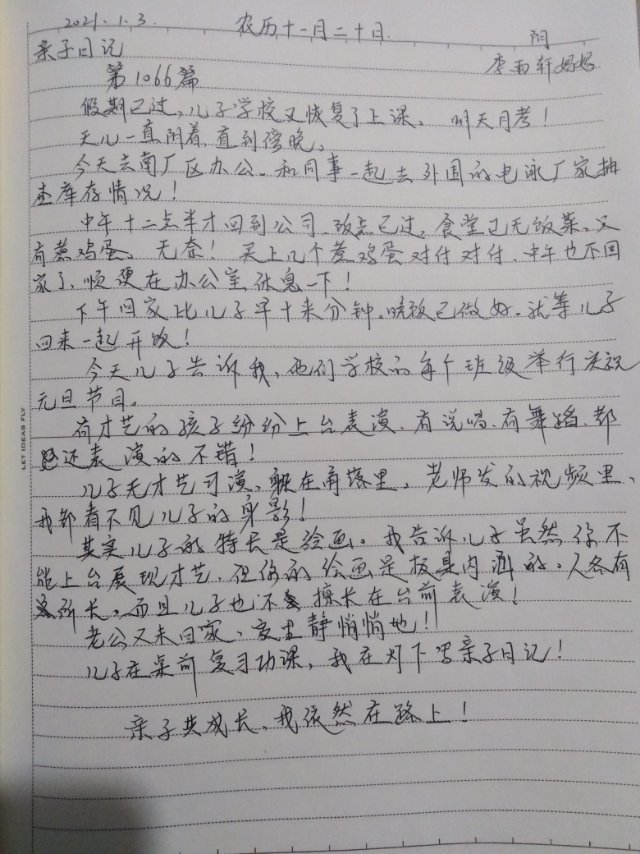 2021.1.3. 农历十一月二十日. 阴
亲子日记 李雨轩妈妈
第1066篇
假期已过,儿子学校又恢复了上课。明天月考!
天儿一直阴着,直到傍晚。
今天去南厂区办公。和同事一起去外围的电泳厂家抽
查库存情况!
中午十二点半才回到公司,饭点已过,食堂已无饭菜。又
有煮鸡蛋。无奈!买上几个煮鸡蛋对付对付,中午也不回
家了,顺便在办公室休息一下!
下午回家比儿子早十来分钟。晚饭已做好。就等儿子
回来一起开饭!
今天儿子告诉我,他们学校的每个班级举行庆祝
元旦节目。
有才艺的孩子纷纷上台表演,有说唱,有舞蹈,都
还表演的不错!
儿子无才艺可演,躲在角落里,老师发的视频里、
我都看不见儿子的身影!
其实儿子的特长是绘画。我告诉儿子虽然你不
能上台展现才艺,但你的绘画是极具内涵的。人各有
所长,而且儿子也不擅长在台前表演!
老公又未回家,家里静悄悄地!
儿子在桌前复习功课,我在灯下写亲子日记!
亲子共成长、我依然在路上!
LET IDEAS FLY